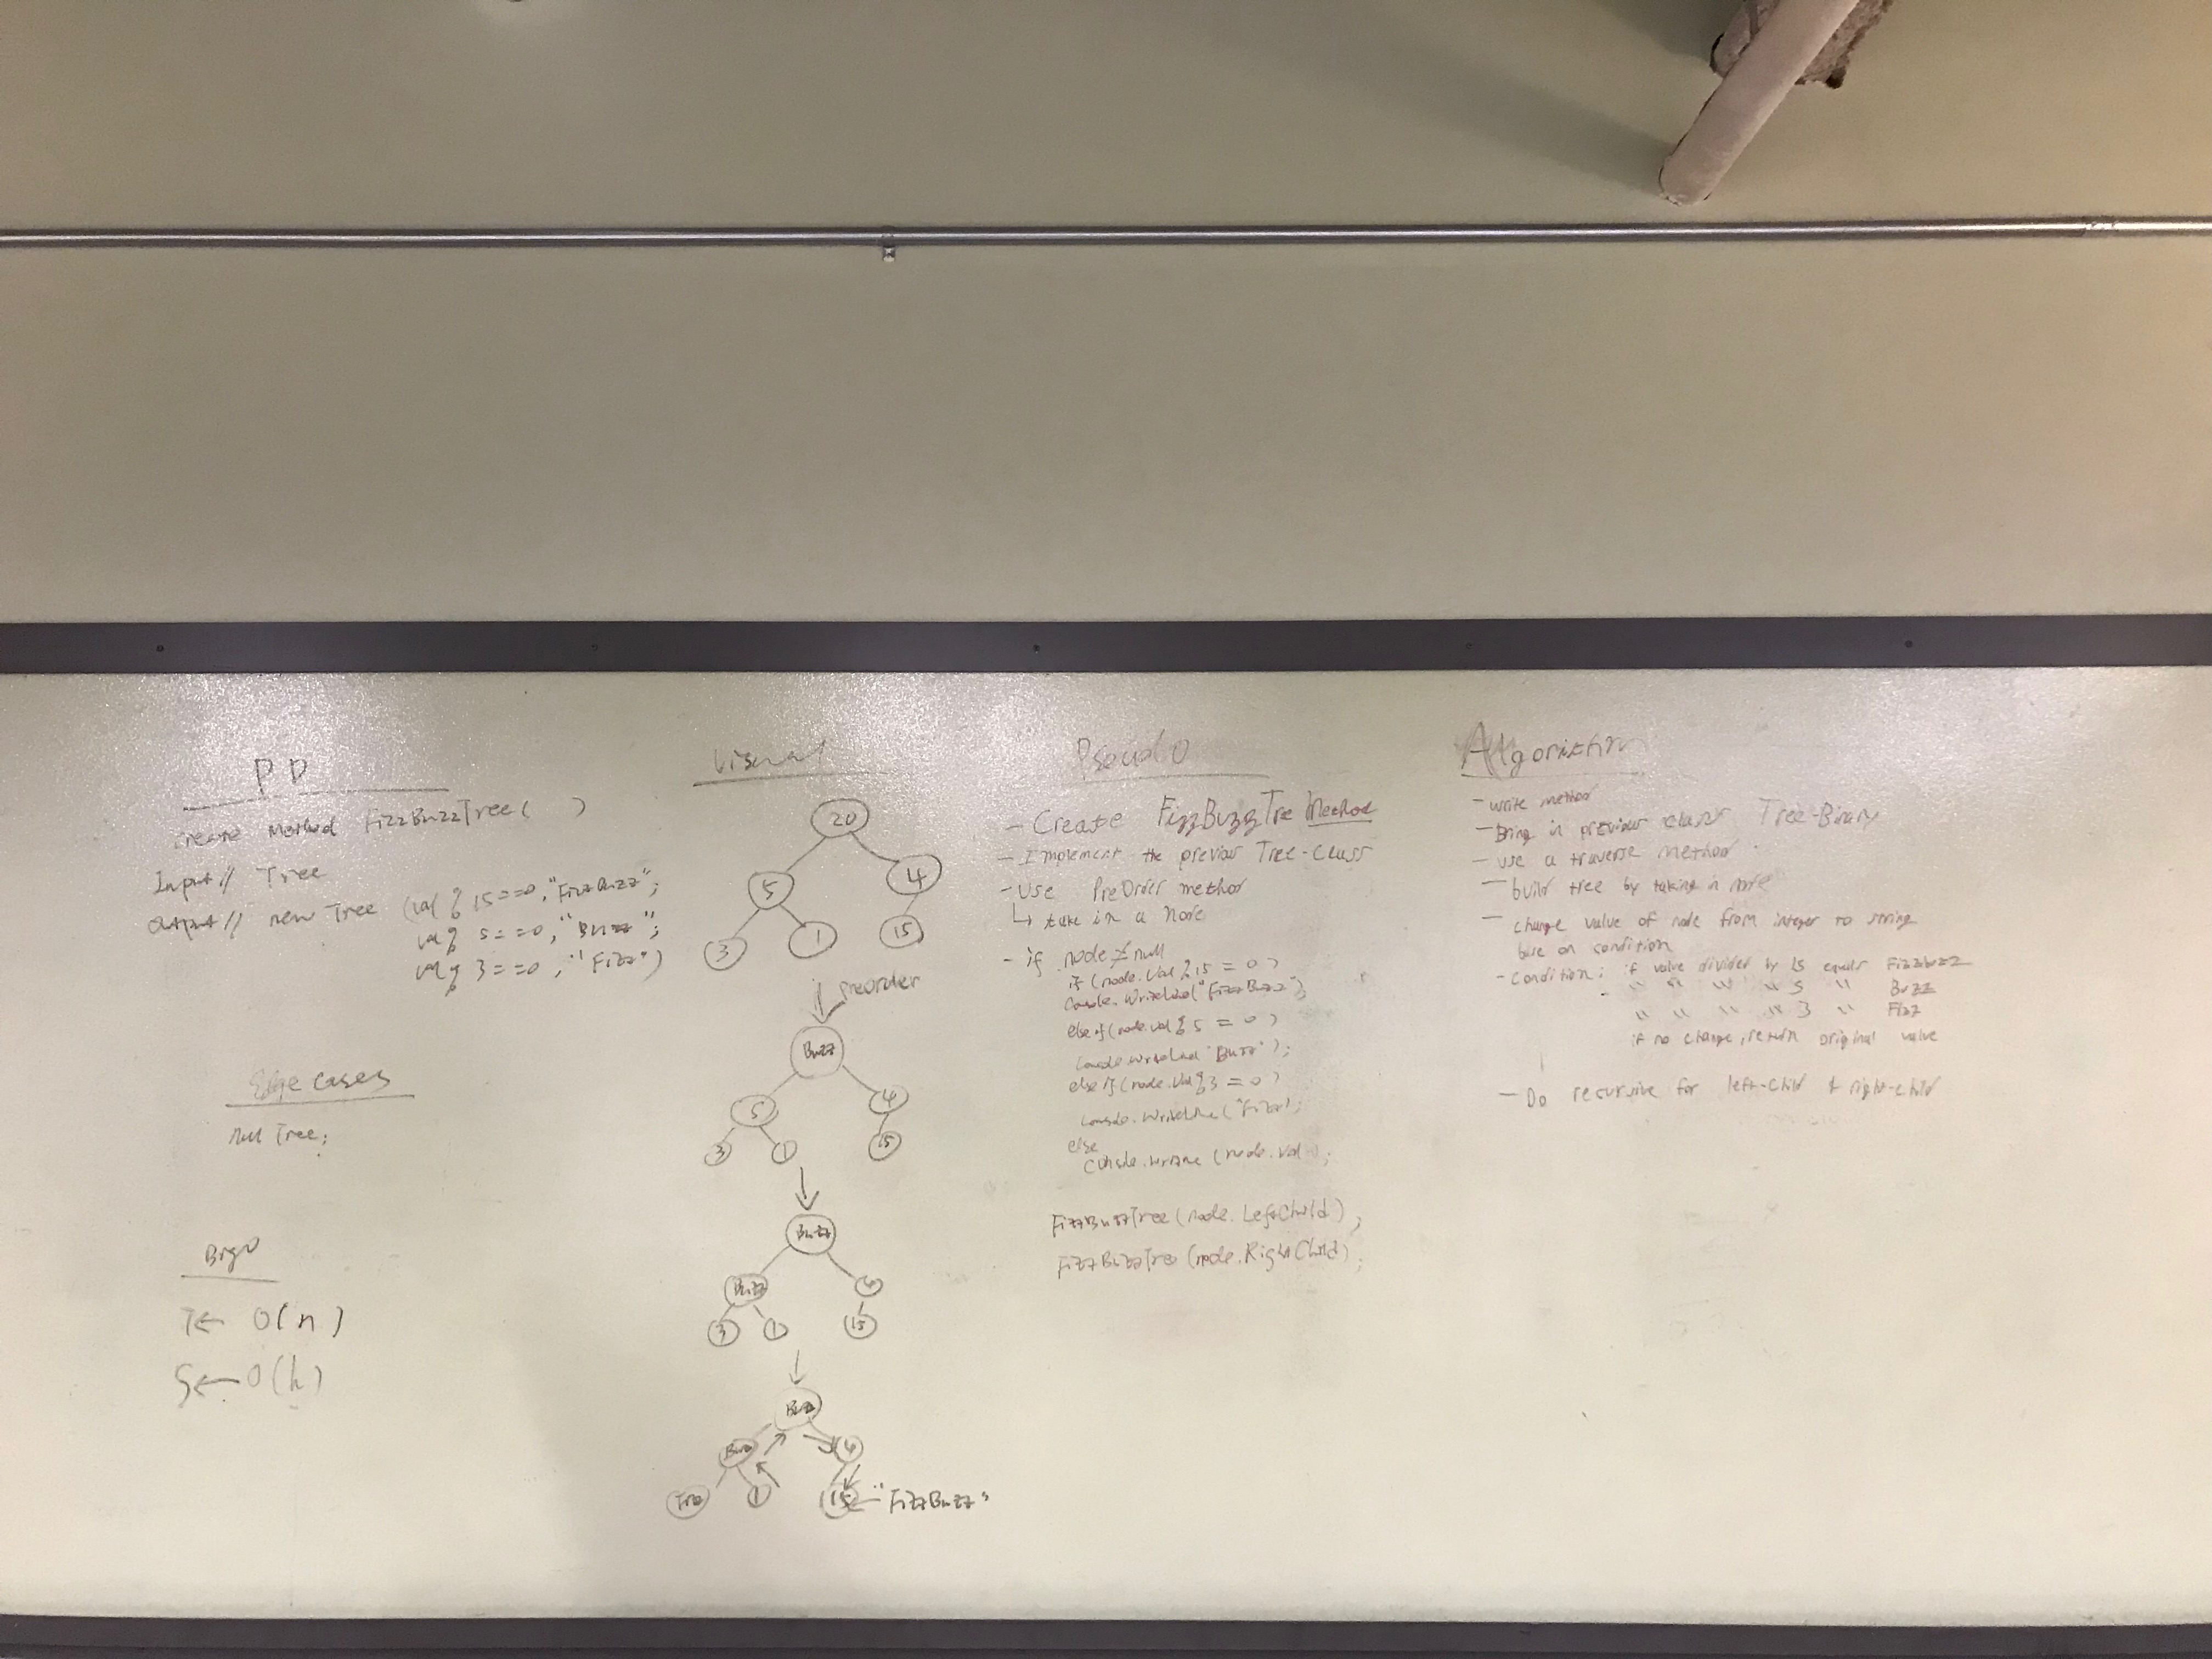 PD
Create Method FizzBuzzTree( )
Input// Tree
Output// new Tree (val % 15==0, "FizzBuzz";
val % 5==0, "Buzz";
val % 3==0, "Fizz")
Edge cases
null Tree;
BigO
T← O(n)
S← O(h)
Visual
20
5
4
3
1
15
preorder
Buzz
5
4
3
1
15
Buzz
Buzz
4
3
1
15
Buzz
Buzz
4
Fizz
1
15
"FizzBuzz"
Pseudo
- Create FizzBuzzTree Method
- Implement the previous Tree-class
- Use PreOrder method
↳ take in a Node
- if node ≠ null
if (node.Val % 15 = 0)
Console.Write "FizzBuzz");
else if (node.val % 5 = 0)
Console. "Buzz");
else if (node.Val % 3 = 0)
Console.WriteLine("Fizz");
else
Console. (node.Val );
FizzBuzzTree(node.LeftChild);
FizzBuzzTree(node.RightChild);
Algorithm
- write method
- Bring in previous class Tree-Binary
- use a traverse method
- build tree by taking in node
- change value of node from integer to string
base on condition
- condition: if value divided by 15 equals Fizzbuzz
" " " " 5 " Buzz
" " " " 3 " Fizz
if no change, return original value
- Do recursive for left-child & right-child